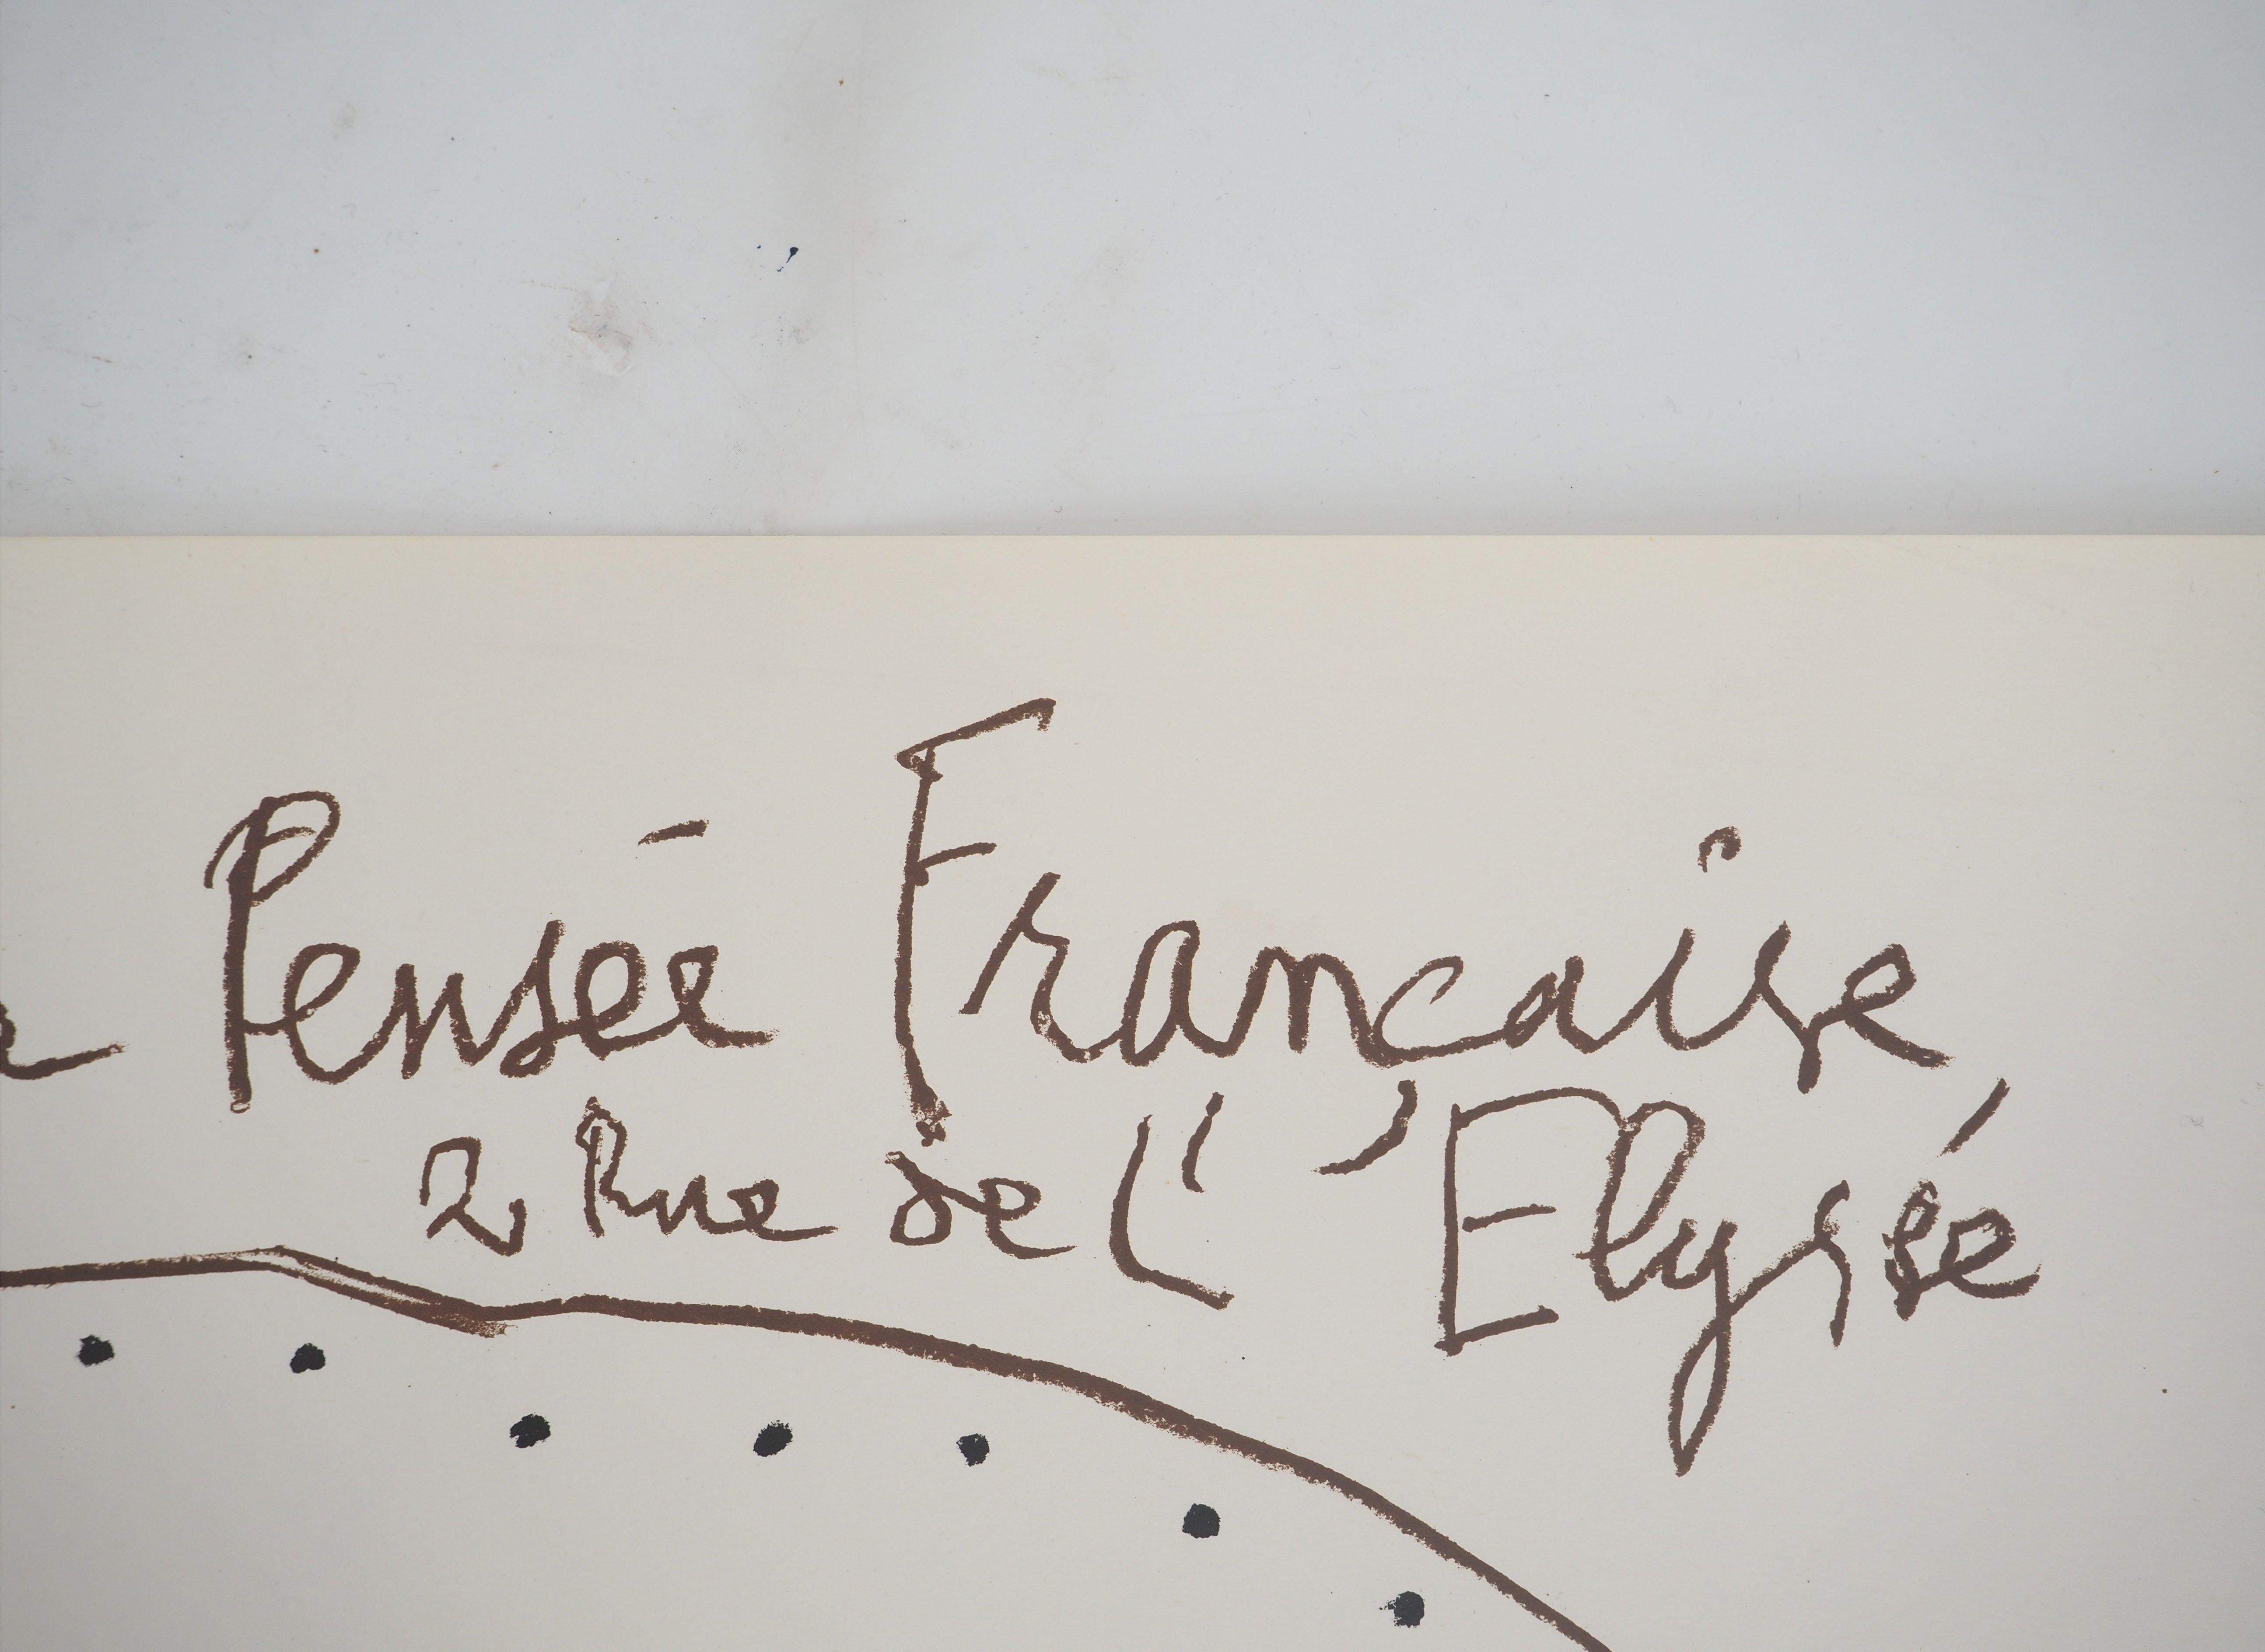 Pensée Française
2 Rue de L'Elysée